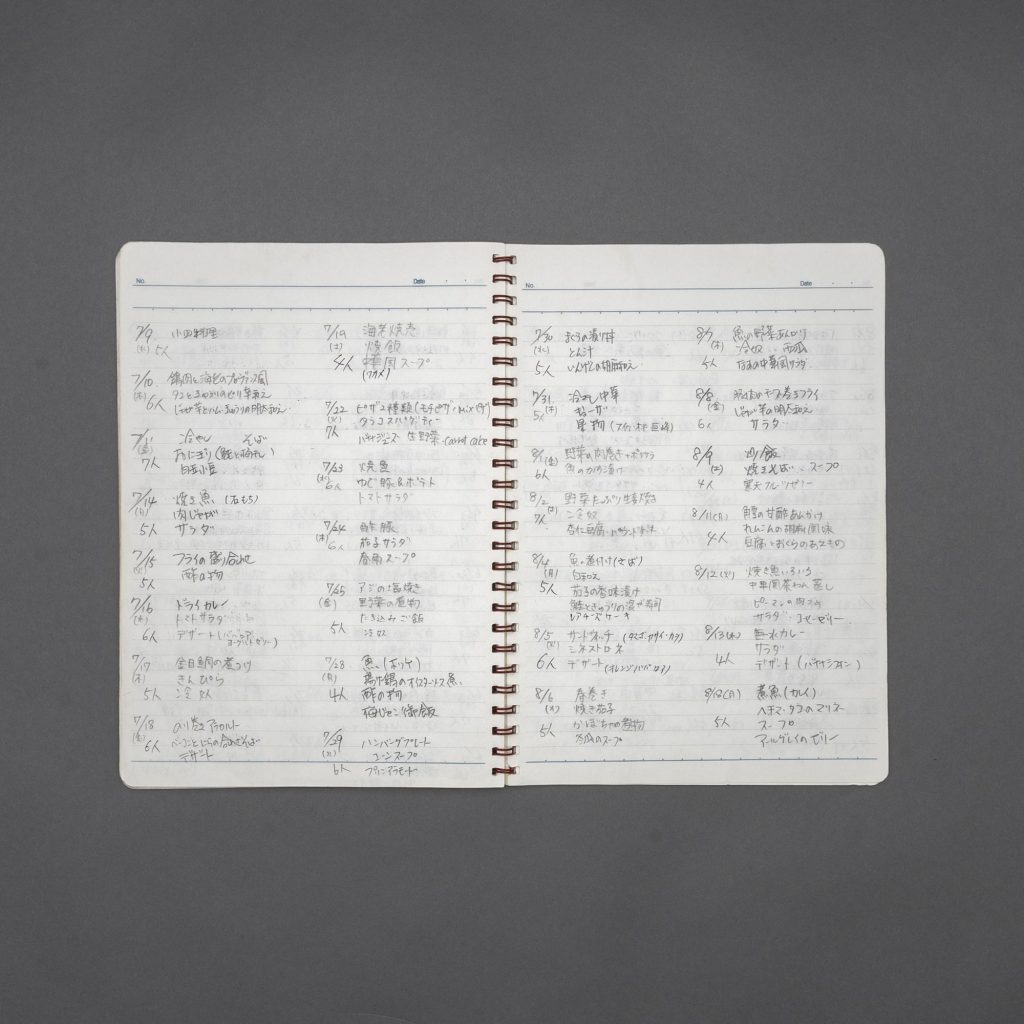 No.
Date
7/9 小皿料理
(水) 5人
7/10 鶏肉と海老のプロヴァンス風
(木) タコときゅうりのせり辛和え
6人 じゃが芋とハム、きゅうりの明太和え
7/11 冷やし そば
(金) おにぎり(鮭と梅干し)
7人 白玉小豆
7/14 焼き魚 (石もち)
(月) 肉じゃが
5人 サラダ
7/15 フライの盛り合わせ
酢の物
5人
7/16 ドライカレー
(水) トマトサラダ
6人 デザート(ババロア
ヨーグルトゼリー)
7/17 金目鯛の煮つけ
(木) きんぴら
5人 冷奴
7/18 のり巻き アラカルト
(金) ベーコンとにらの合わせそば
6人 デザート
7/19 海老焼売
(土) 焼飯
4人 中華風スープ
(ワカメ)
7/22 ピザ2種類(モチピザ・Mixピザ)
(火) タラコスパゲティー
7人 生野菜 carrot cake
7/23 焼魚
(水) ゆで豚&ポテト
6人 トマトサラダ
7/24 酢豚
(木) 茄子サラダ
6人 春雨スープ
7/25 アジの塩焼き
(金) 野菜の煮物
たき込みご飯
5人 冷奴
7/28 魚(ホッケ)
(月) 揚げ鶏のオイスターソス煮
4人 酢の物
梅じゃこ御飯
7/29 ハンバーグプレート
(火) コーンスープ
6人 プリンアラモード
No.
Date
7/30 まぐろの漬け丼
(水) とん汁
5人 いんげんの胡麻和え
7/31 冷やし中華
(木) ギョーザ
5人 果物(スイカ・桃・巨峰)
8/1(金) 野菜の肉巻き+ポテサラ
6人 魚のかす漬け
8/2 野菜たっぷり生姜焼き
(土) 冷奴
7人 杏仁豆腐・パウンドケーキ
8/4 魚の煮付け(さば)
(月) 白和え
5人 茄子の香味漬け
鮭ときゅうりの混ぜ寿司
レアチーズケーキ
8/5 サンドウィッチ
(火) ミネストロネ
6人 デザート(オレンジババロア)
8/6 春巻き
(水) 焼き茄子
5人 かぼちゃの煮物
冬瓜のスープ
8/7 魚の野菜あんかけ
(木) 冷奴 西瓜
5人 なすの中華風サラダ
8/8 チーズ巻きフライ
(金) じゃが芋の明太和え
6人 サラダ
8/9 炒飯
(土) 焼きそば スープ
4人 寒天フルーツゼリー
8/11(月) 肉団子の甘酢あんかけ
れんこんの胡麻風味
4人 豆腐とおくらのあえもの
8/12(火) 焼き魚いろいろ
中華風茶わん蒸し
ピーマンの肉づめ
サラダ コーヒーゼリー
8/13(水) 夏水カレー
サラダ
4人 デザート(パイナップル)
煮魚(カレイ)
ヘチマ・タコのマリネ
5人 スープ
アールグレイのゼリー